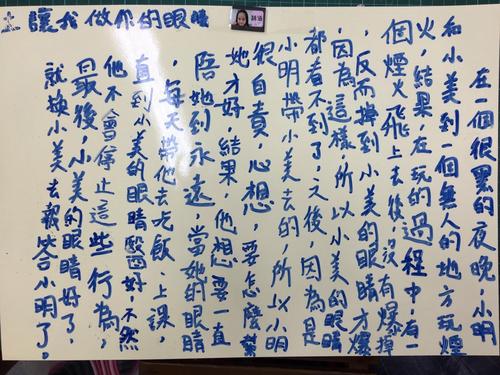 讓我做你的眼睛
在一個很黑的夜晚,小明
和小美到一個無人的地方玩煙
火,結果,在玩的過程中,有一
個煙火飛上去後,沒有爆掉
,反而掉到小美的眼睛才爆
,因為這樣,所以小美的眼睛
都看不到了,之後,因為是
小明帶小美去的,所以小明
很自責,心想,要怎麼幫
她才好,結果,他想要一直
陪她到永遠,當她的眼睛
,每天帶他去吃飯、上課,
直到小美的眼睛醫好,不然
他不會停止這些行為,
最後,小美的眼睛好了,
就換小美去報答小明了。